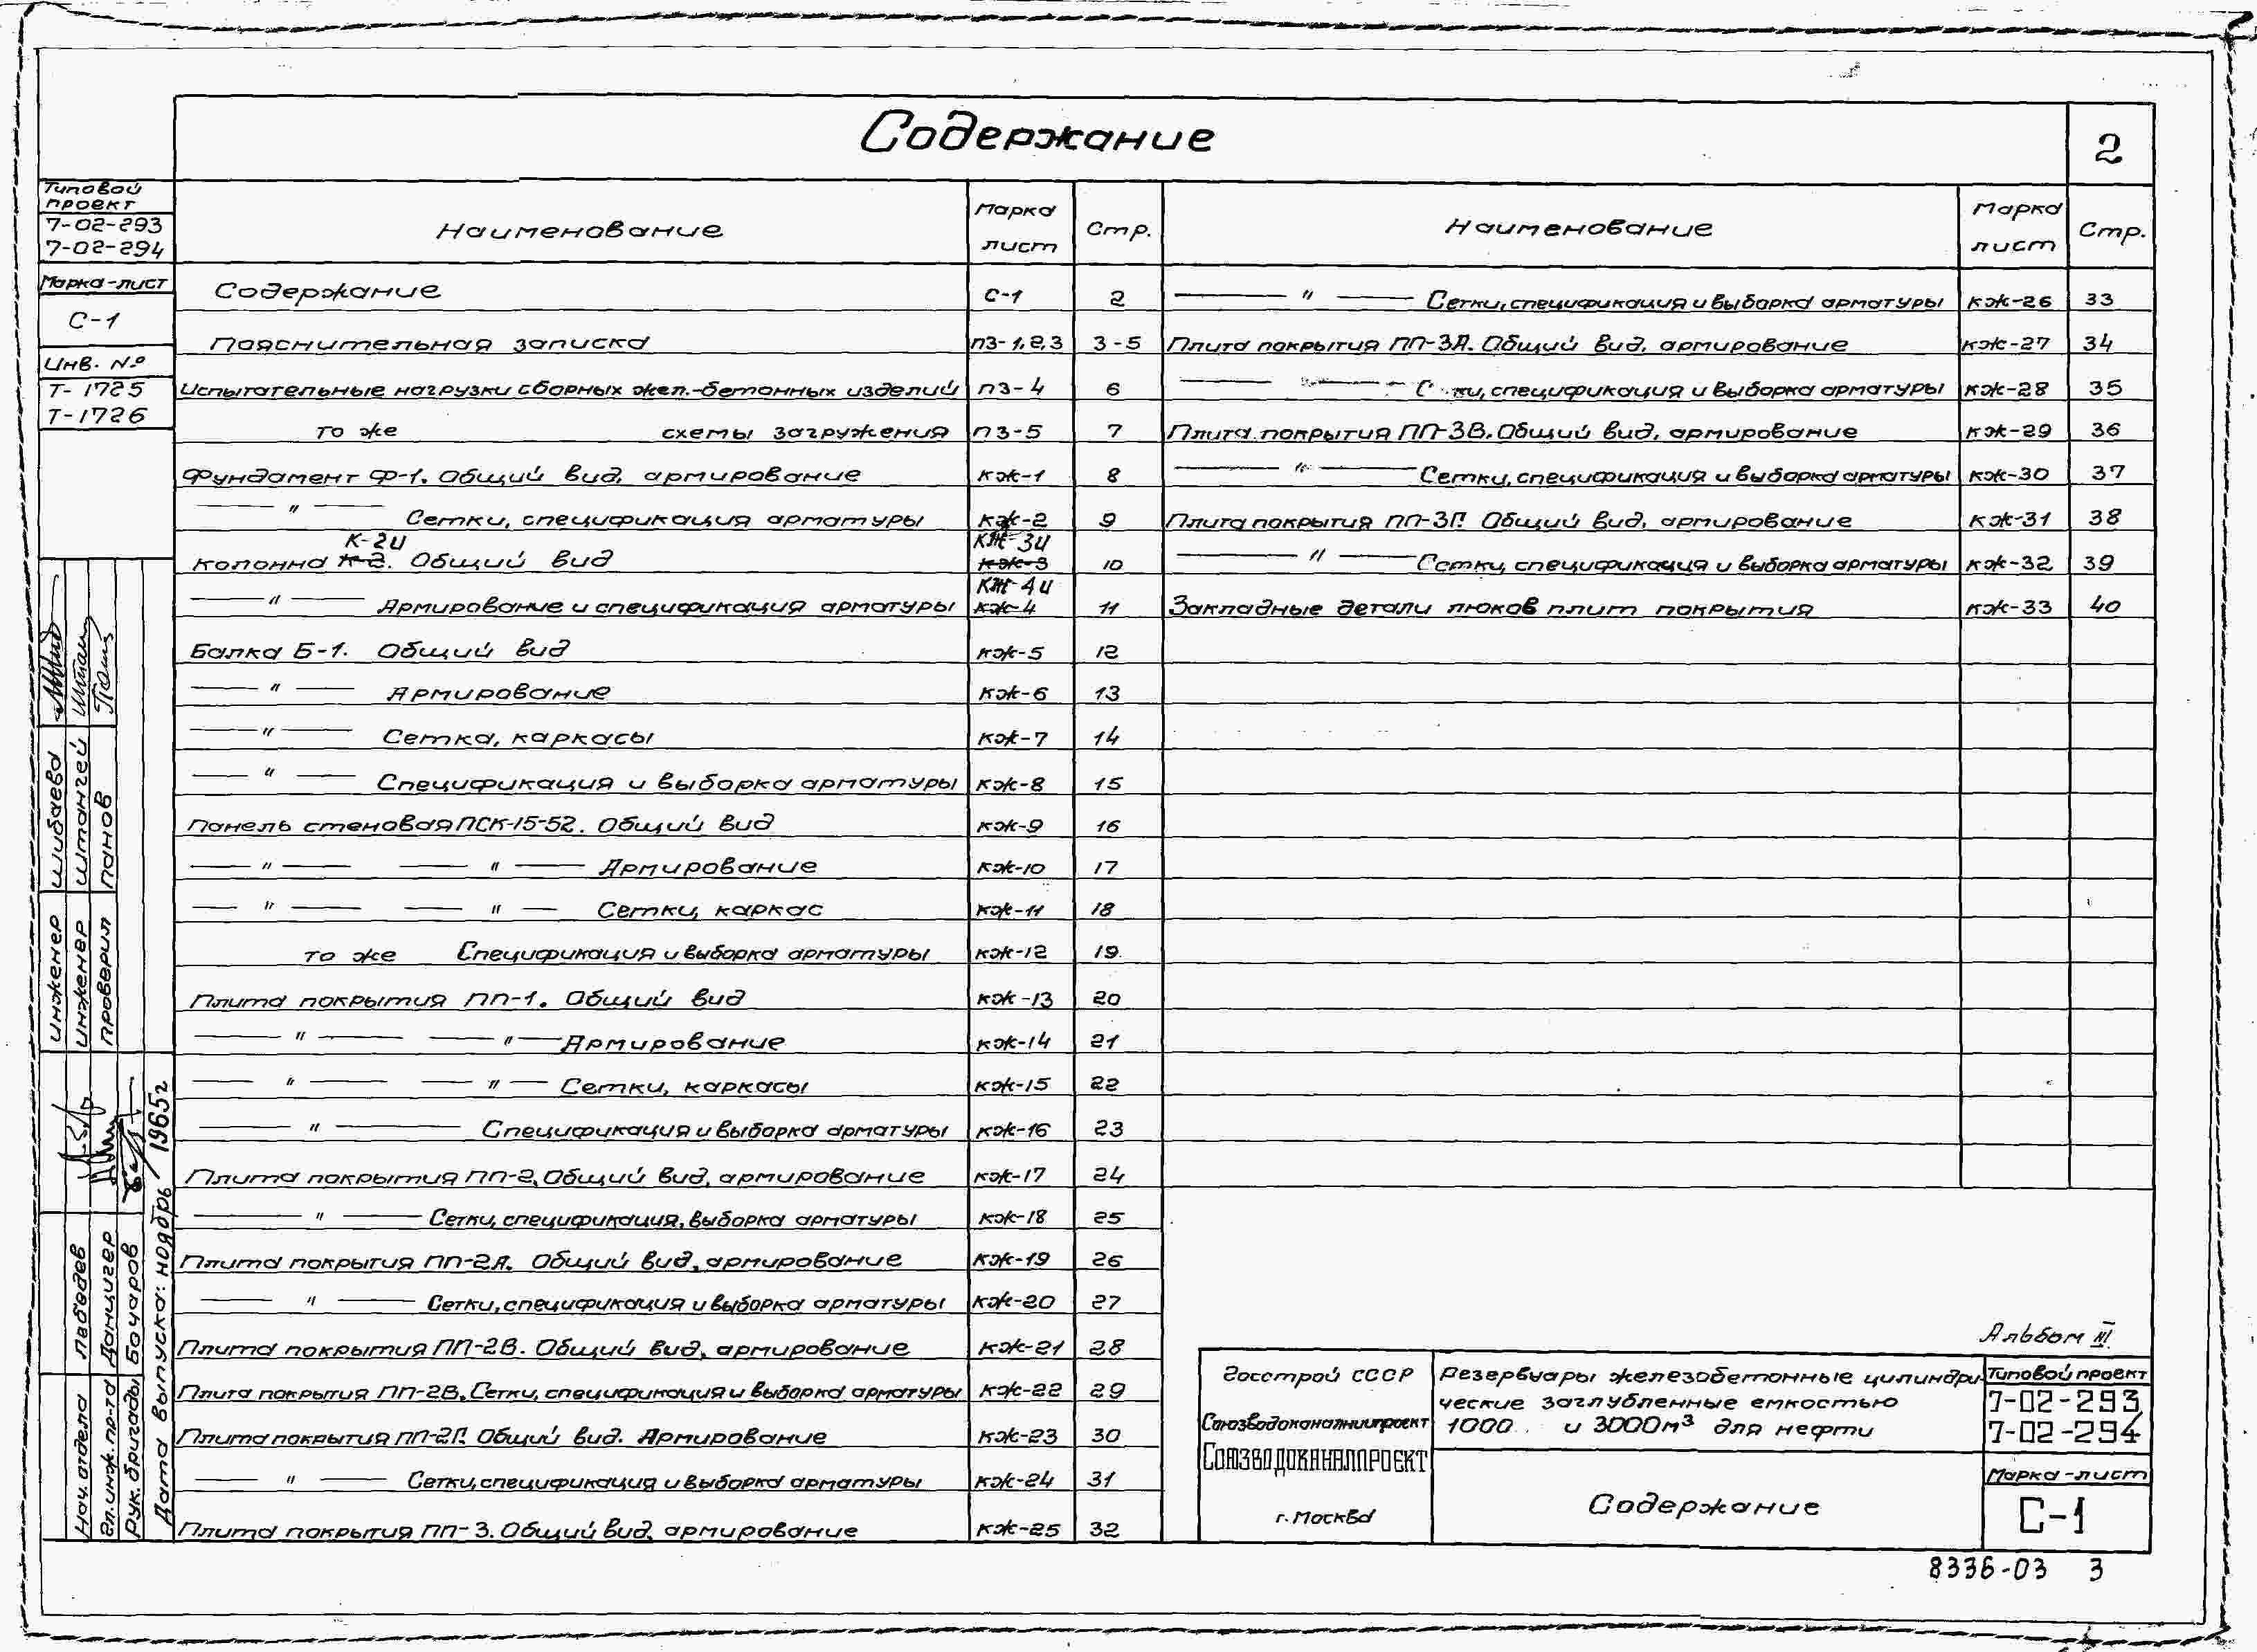 Содержание
2
Типовой
проект
7-02-293
7-02-294
Марка-лист
С-1
Инв. №
Т-1725
Т-1726
Наименование Марка лист Стр.
Содержание С-1 2
Пояснительная записка ПЗ-1,2,3 3-5
Испытательные нагрузки сборных жел.-бетонных изделий ПЗ-4 6
то же схемы загружения ПЗ-5 7
Фундамент Ф-1. Общий вид, армирование КЖ-1 8
— " — Сетки, спецификация арматуры КЖ-2 9
К-2и КЖ-3и
Колонна К-2. Общий вид КЖ-3 10
КЖ-4и
— " — Армирование и спецификация арматуры КЖ-4 11
Балка Б-1. Общий вид КЖ-5 12
— " — Армирование КЖ-6 13
— " — Сетка, каркасы КЖ-7 14
— " — Спецификация и выборка арматуры КЖ-8 15
Панель стеновая ПСК-15-52. Общий вид КЖ-9 16
— " — — " — Армирование КЖ-10 17
— " — — " — Сетки, каркас КЖ-11 18
то же Спецификация и выборка арматуры КЖ-12 19
Плита покрытия ПП-1. Общий вид КЖ-13 20
— " — — " — Армирование КЖ-14 21
— " — — " — Сетки, каркасы КЖ-15 22
— " — Спецификация и выборка арматуры КЖ-16 23
Плита покрытия ПП-2. Общий вид, армирование КЖ-17 24
— " — Сетки, спецификация, выборка арматуры КЖ-18 25
Плита покрытия ПП-2А. Общий вид, армирование КЖ-19 26
— " — Сетки, спецификация и выборка арматуры КЖ-20 27
Плита покрытия ПП-2В. Общий вид, армирование КЖ-21 28
Плита покрытия ПП-2В. Сетки, спецификация и выборка арматуры КЖ-22 29
Плита покрытия ПП-2Г. Общий вид. Армирование КЖ-23 30
— " — Сетки, спецификация и выборка арматуры КЖ-24 31
Плита покрытия ПП-3. Общий вид, армирование КЖ-25 32
Наименование Марка лист Стр.
— " — Сетки, спецификация и выборка арматуры КЖ-26 33
Плита покрытия ПП-3А. Общий вид, армирование КЖ-27 34
— " — С ки, спецификация и выборка арматуры КЖ-28 35
Плита покрытия ПП-3В. Общий вид, армирование КЖ-29 36
— " — Сетки, спецификация и выборка арматуры КЖ-30 37
Плита покрытия ПП-3Г. Общий вид, армирование КЖ-31 38
— " — Сетки, спецификация и выборка арматуры КЖ-32 39
Закладные детали люков плит покрытия КЖ-33 40
инженер Шибаева
инженер Штангей
проверил Панов
Нач. отдела Лебедев
Гл. инж. пр-та Данцигер
Рук. бригады Бочаров
Дата выпуска: ноябрь 1965г
Альбом III
Госстрой СССР
Союзводоканалниипроект
СОЮЗВОДОКАНАЛПРОЕКТ
г. Москва
Резервуары железобетонные цилиндри-
ческие заглубленные емкостью
1000 и 3000м³ для нефти
Содержание
Типовой проект
7-02-293
7-02-294
Марка-лист
С-1
8336-03 3